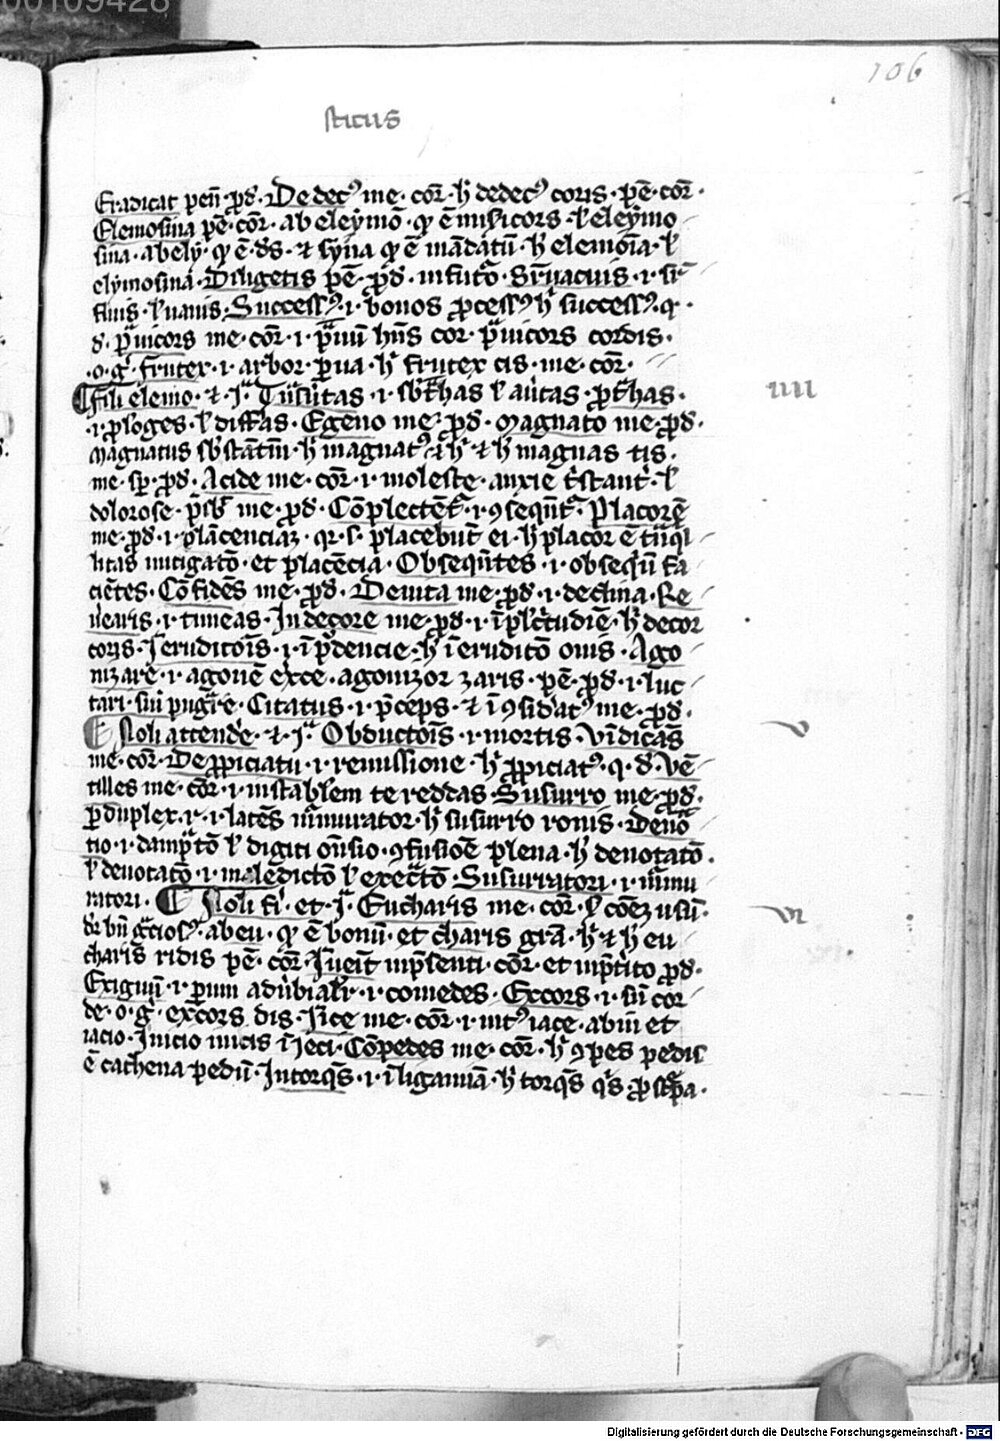 00109428
106
sticus
Eradicat pen̄ · ꝓd · Dedecꝰ me · cor̄ · h̓ dedecꝰ coris · pē · cor̄ ·
Elemosina pē · cor̄ · ab eleymō · qͥ ē misicors · l̓ eleymo
sina · abely · qͥ ē · ds̄ · ⁊ syna qͥ ē mādatū · h̓ elemoīa · l̓
elymosina · Diligetis pē · ꝓd · in futō ·
finis · l̓ uanis · Successꝰ · i · bonos ꝓcessꝰ h̓ successꝰ · q ·
d · pͣuicors me · cor̄ · i · pͣuū hn̄s cor · pͣuicors cordis ·
· o · g̓ · frutex · i · arbor ꝑua · h̓ frutex cis · me · cor̄ ·
¶ fili elemo · ⁊ · iͣ ·
· i · ꝓloges · l̓ diffās · Egeno me · ꝓd · Magnato me · ꝓd ·
Magnatus · h̓ magnatꝰ · ⁊ h̓ · ⁊ h̓ magnas tis ·
me · sꝑ · ꝓd · Acide me · cor̄ · i · moleste · anxie · l̓
dolorose · me · ꝓd · Cōplectēt̓ · i · ꝯsequn̄t̓ · Placorē
me · ꝓd · i · plācenciaꝫ · qr · s · placebūt ei · h̓ placor ē
litas mitigatō · et placēcia · Obseqn̄tes · i · obseqiū fa
ciētes · Cōfidēs me · ꝓd · Deuita me · ꝓd · i · declina · Re
uearis · i · timeas · Indecore me · ꝓd · i · h̓ decor
coris · Ieruditois · i · īpͥdencie · h̓ ieruditō onis · Ago
nizare · i · agonē exce · agonizor zaris · pē · ꝓd · i · luc
tari · siū pugͣre · Citatus · i · pͥceps · ⁊ īꝯsidatꝰ me · ꝓd ·
¶ Noli attende · ⁊ · iͣ · Obductois · i · mortis · Vindicās
me · cor̄ · De ꝓpiciatu · i · remissione · h̓ ꝓpiciatꝰ · q · d · Vē
tilles me · cor̄ · i · instablem te reddas · Susurro me · ꝓd ·
ꝑduplex · r · i · latēs murmurator · h̓ susurro ronis · Deno
tio · i · l̓ digiti onsio · ꝯfusiōe plena · h̓ denotatō ·
l̓ denotatō · i · maledictō l̓ execͣtō · Susurratori · i · murmu
ratori · ¶ Noli fi̓ · et · iͣ · Eucharis me · cor̄ ·
abeu · qͥ ē bonū · et charis grā · h̓ ⁊ h̓ eu
charis ridis pē · cor̄ · Iueīt inpͥsenti · cor̄ · et inpͥtito ꝓd ·
Exiguū · i · ꝑum · i · comedes · Excors · i · siū cor
de · o · g̓ · excors dis · Iīce me · cor̄ · i · intꝰ iace · abin et
iacio · Inicio inicis īieci · Cōpedes me · cor̄ · h̓ ꝯpes pedis
ē cathena pedū · Intorqs̄ · i · īligamiā · h̓ torqs̄ qs̄
iiii
v
vi
Digitalisierung gefördert durch die Deutsche Forschungsgemeinschaft - DFG